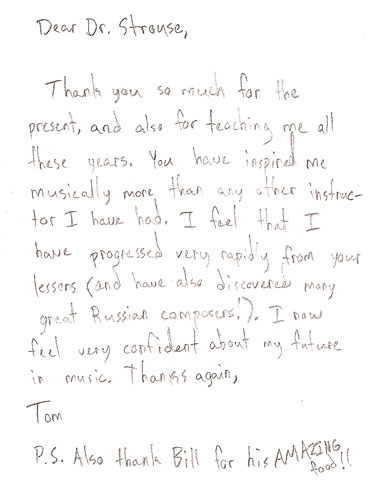 Dear Dr. Strouse,
Thank you so much for the
present, and also for teaching me all
these years. You have inspired me
musically more than any other instruc-
tor I have had. I feel that I
have progressed very rapidly from your
lessons (and have also discovered many
great Russian composers!). I now
feel very confident about my future
in music. Thanks again,
Tom
P.S. Also thank Bill for his AMAZING
food!!